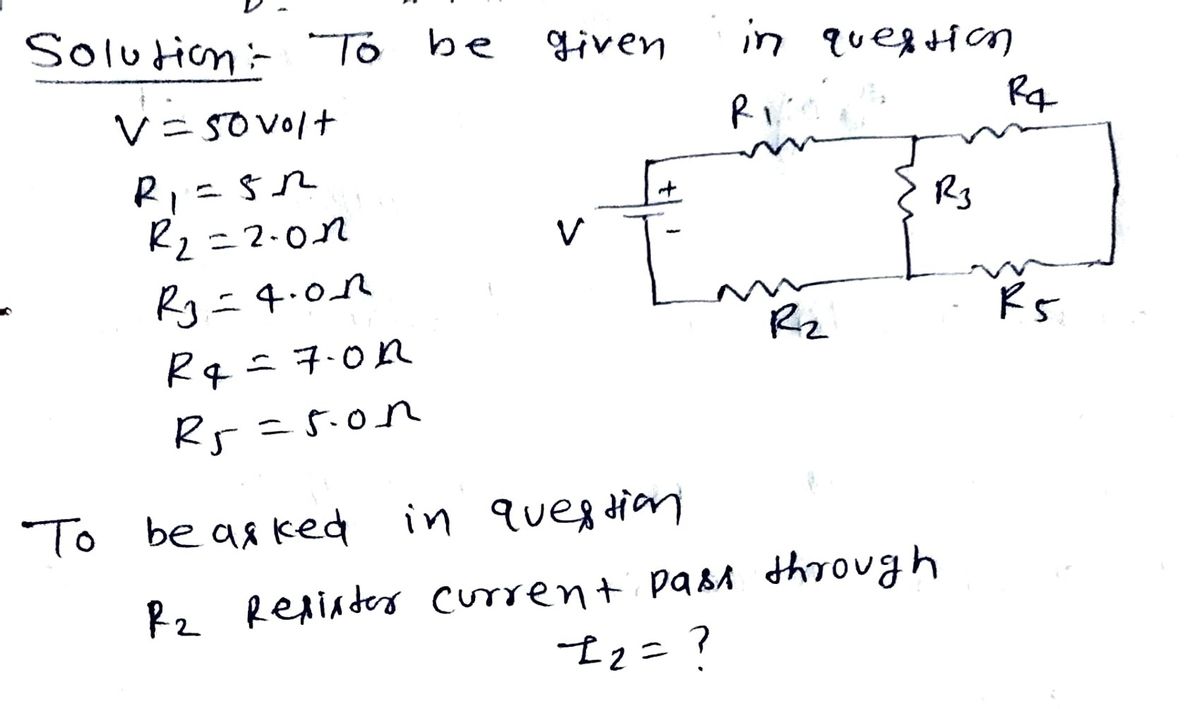 Solution:- To be given in question
V = 50 volt
R1 = 5 Ω
R2 = 2.0Ω
R3 = 4.0Ω
R4 = 7.0Ω
R5 = 5.0Ω
R1
R4
+
R3
V
-
R2
R5
To be asked in question
R2 Resistor current pass through
I2 = ?